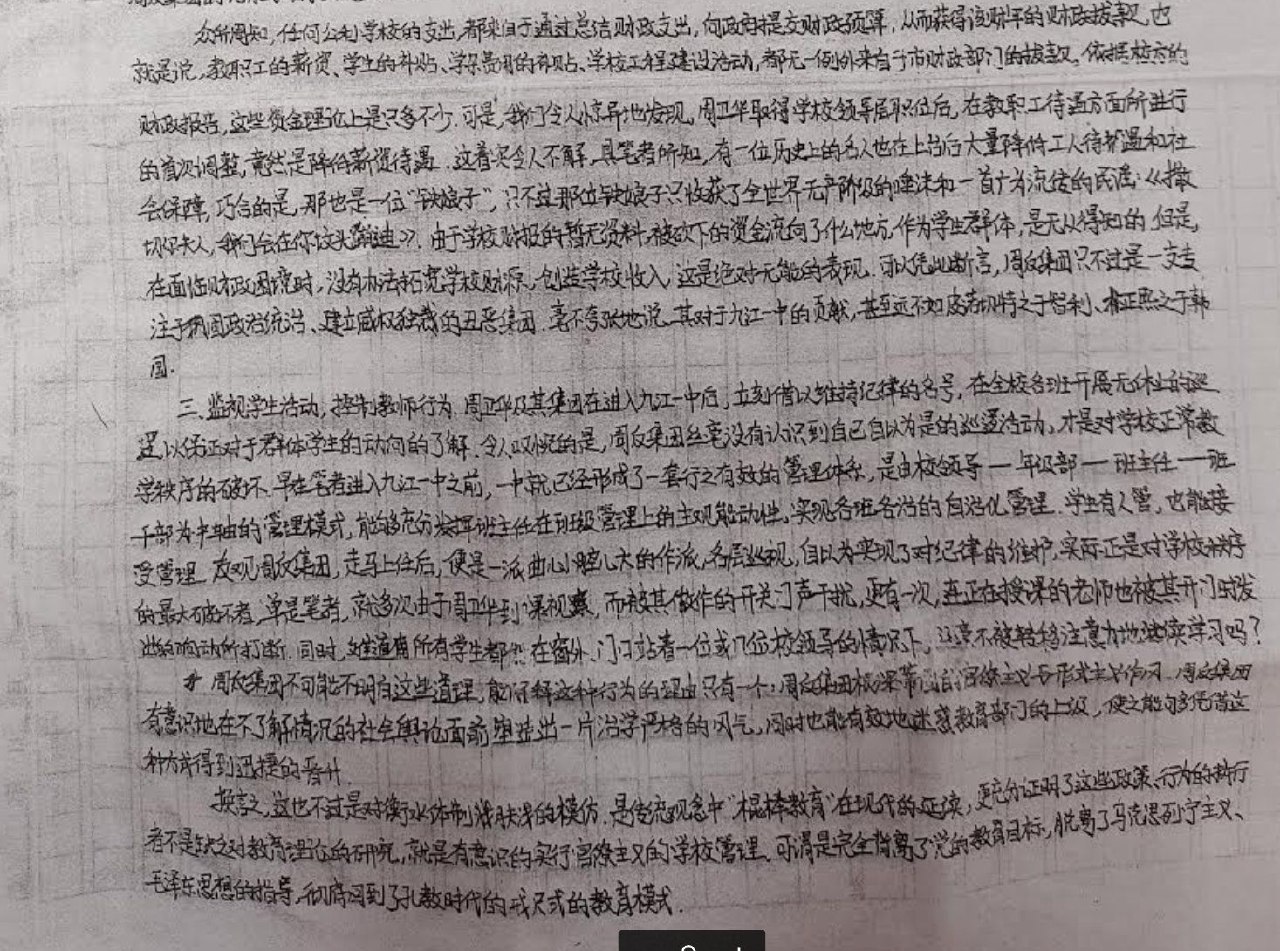 众所周知,任何公利学校的支出,都来自于通过总结财政支出,向政府提交财政预算,从而获得该财年的财政拨款,也
就是说,教职工的薪资、学生的补贴、学杂费用的补贴、学校工程建设活动,都无一例外来自于市财政部门的拨款。依据校方的
财政报告,这些资金理论上是只多不少.可是,我们令人惊异地发现,周卫华取得学校领导层职位后,在教职工待遇方面所进行
的首次调整,竟然是降低薪资待遇.这着实令人不解.具笔者所知,有一位历史上的名人也在上台后大量降低工人待遇和社
会保障,巧合的是,那也是一位“铁娘子”,只不过那位铁娘子只收获了全世界无产阶级的唾沫和一首广为流传的民谣:《撒
切尔夫人,我们会在你坟头蹦迪》.由于学校财报的暂无资料,被砍下的资金流向了什么地方,作为学生群体,是无从得知的.但是,
在面临财政困境时,没有办法拓宽学校财源,创造学校收入,这是绝对无能的表现.可以凭此断言,周皮集团只不过是一支专
注于巩固政治统治、建立威权独裁的丑恶集团.毫不夸张地说,其对于九江一中的贡献,甚至远不如皮诺切特之于智利、朴正熙之于韩
国.
三.监视学生活动,控制教师行为.周卫华及其集团在进入九江一中后,立刻借以维持纪律的名号,在全校各班开展无休止的巡
逻,以保证对于群体学生的动向的了解.令人叹惋的是,周皮集团丝毫没有认识到自己自以为是的巡逻活动,才是对学校正常教
学秩序的破坏.早在笔者进入九江一中之前,一中就已经形成了一套行之有效的管理体系,是由校领导—年级部—班主任—班
干部为中轴的管理模式,能够充分发挥班主任在班级管理上的主观能动性,实现各班各治的自治化管理.学生有人管,也能接
受管理.反观周皮集团,走马上任后,便是一派曲心小腔儿大的作派,各层巡视,自以为实现了对纪律的维护,实际正是对学校秩序
的最大破坏者.单是笔者,就多次由于周卫华到课视察,而被其做作的开关门声干扰,更有一次,连正在授课的老师也被其开门时发
出的响动所打断.同时,难道有所有学生都能在窗外、门口站着一位或几位校领导的情况下,还毫不被转移注意力地继续学习吗?
周皮集团不可能不明白这些道理,能解释这种行为的理由只有一个:周皮集团根深蒂固的官僚主义与形式主义作风.周皮集团
有意识地在不了解情况的社会舆论面前塑造出一片治学严格的风气,同时也能有效地迷惑教育部门的上级,使之能够凭借这
种方式得到迅捷的晋升.
换言之,这也不过是对衡水体制浅肤浅的模仿.是传统观念中“棍棒教育”在现代的延续,更充分证明了这些政策、行为的执行
者不是缺乏对教育理论的研究,就是有意识的实行官僚主义的学校管理.可谓是完全背离了党的教育目标,脱离了马克思列宁主义、
毛泽东思想的指导,彻底回到了孔教时代的戒尺式的教育模式.